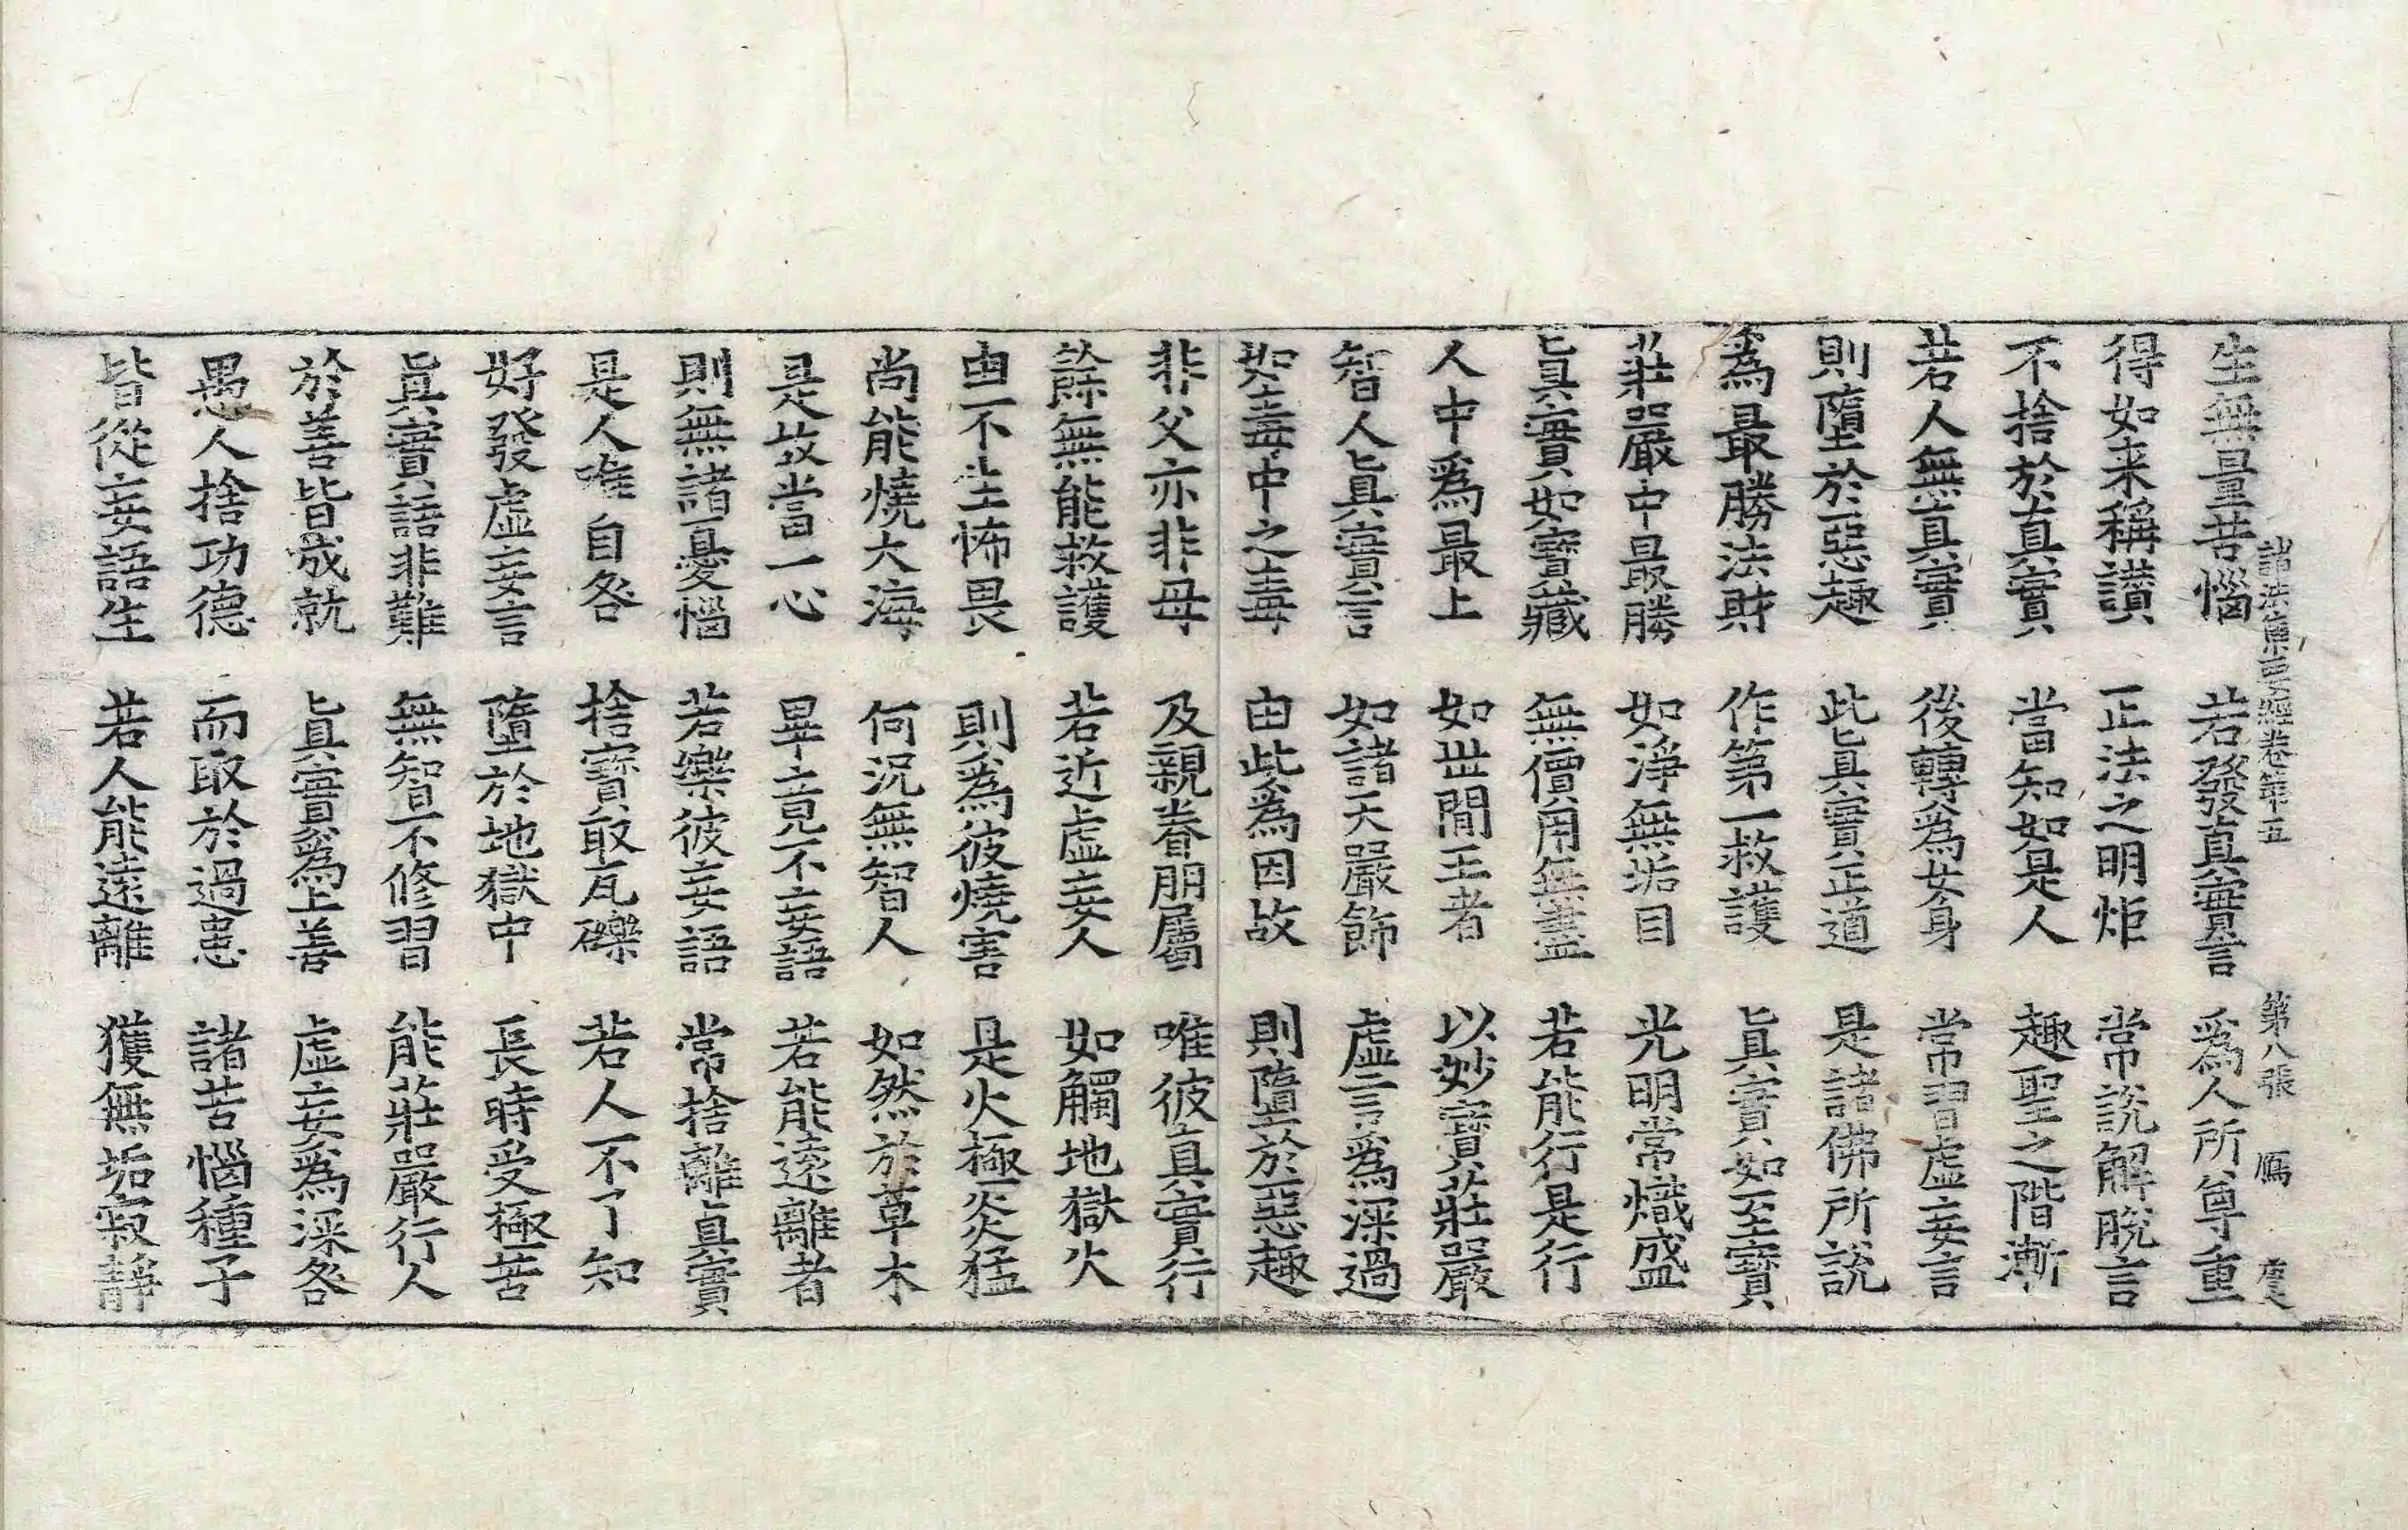 諸法集要經卷第五 第八張 鴈
生無量苦惱 若發真實言 爲人所尊重
得如来稱讃 正法之明炬 常說解脫言
不捨於真實 當知如是人 趣聖之階漸
若人無真實 後轉爲女身 常習虛妄言
則墮於惡趣 此眞實正道 是諸佛所說
爲最勝法財 作第一救護 眞實如至寶
莊嚴中最勝 如淨無垢目 光明常熾盛
眞實如寶藏 無價用無盡 若能行是行
人中爲最上 如世間王者 以妙寶莊嚴
智人眞實言 如諸天嚴飾 虛言爲深過
如毒中之毒 由此爲因故 則墮於惡趣
非父亦非母 及親眷朋屬 唯彼真實行
餘無能救護 若近虛妄人 如觸地獄火
由不生怖畏 則爲彼燒害 是火極炎猛
尚能燒大海 何況無智人 如然於草木
是故當一心 畢竟不妄語 若能遠離者
則無諸憂惱 若樂彼妄語 常捨離眞實
是人唯自咎 捨寶取瓦礫 若人不了知
好發虛妄言 墮於地獄中 長時受極苦
眞實語非難 無智不修習 能莊嚴行人
於善皆成就 眞實爲上善 虛妄爲深咎
愚人捨功德 而取於過患 諸苦惱種子
皆從妄語生 若人能遠離 獲無垢寂靜